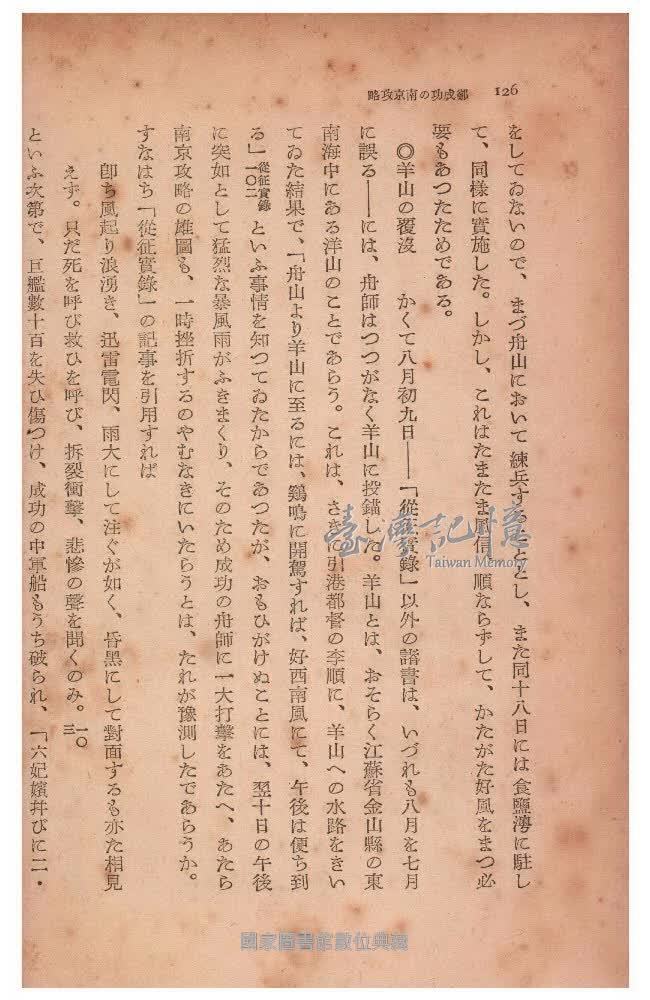 126 鄭成功の南京攻略
をしてゐないので、まづ舟山において練兵することとし、また同十八日には食鹽澚に駐し
て、同樣に實施した。しかし、これはたまたま風信、順ならずして、かたがた好風をまつ必
要もあつたためである。
◎羊山の覆沒　かくて八月初九日――「從征實錄」以外の諸書は、いづれも八月を七月
に誤る――には、舟師はつつがなく羊山に投錨した。羊山とは、おそらく江蘇省金山縣の東
南海中にある洋山のことであらう。これは、さきに引港都督の李順に、羊山への水路をきい
てゐた結果で、「舟山より羊山に至るには、鷄鳴に開駕すれば、好西南風にて、午後は便ち到
る」從征實錄一〇二といふ事情を知つてゐたからであつたが、おもひがけぬことには、翌十日の午後
に突如として猛烈な暴風雨がふきまくり、そのため成功の舟師に一大打擊をあたへ、あたら
南京攻略の雄圖も、一時挫折するのやむなきにいたらうとは、たれが豫測したであらうか。
すなはち「從征實錄」の記事を引用すれば
卽ち風起り浪湧き、迅雷電閃、雨大にして注ぐが如く、昏黑にして對面するも亦た相見
えず。只だ死を呼び救ひを呼び、拆裂衝擊、悲慘の聲を聞くのみ。一〇三
といふ次第で、巨艦數十百を失ひ傷つけ、成功の中軍船もうち破られ、「六妃嬪幷びに二・
臺灣記憶
Taiwan Memory
國家圖書館數位典藏